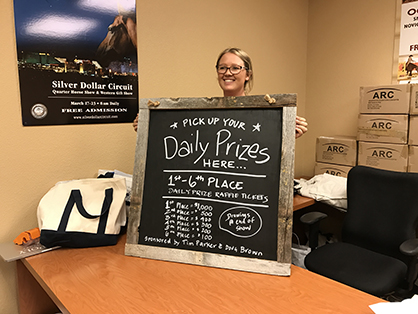 Silver Dollar Circuit
Quarter Horse Show & Western Gift Show
March 17-23 • 8am Daily
FREE ADMISSION
www.silverdollarcircuit.com
PICK UP YOUR
Daily Prizes
HERE...
1st-6th PLACE
DAILY PRIZE RAFFLE TICKETS
1st PLACE = $1,000
2nd PLACE = $500
3rd PLACE = $400
4th PLACE = $300
5th PLACE = $200
6th PLACE = $100
Drawings @ end of show!
Sponsored by Tim Parker & Dora Brown
ARC
ARC
ARC
ARC
ARC
ARC